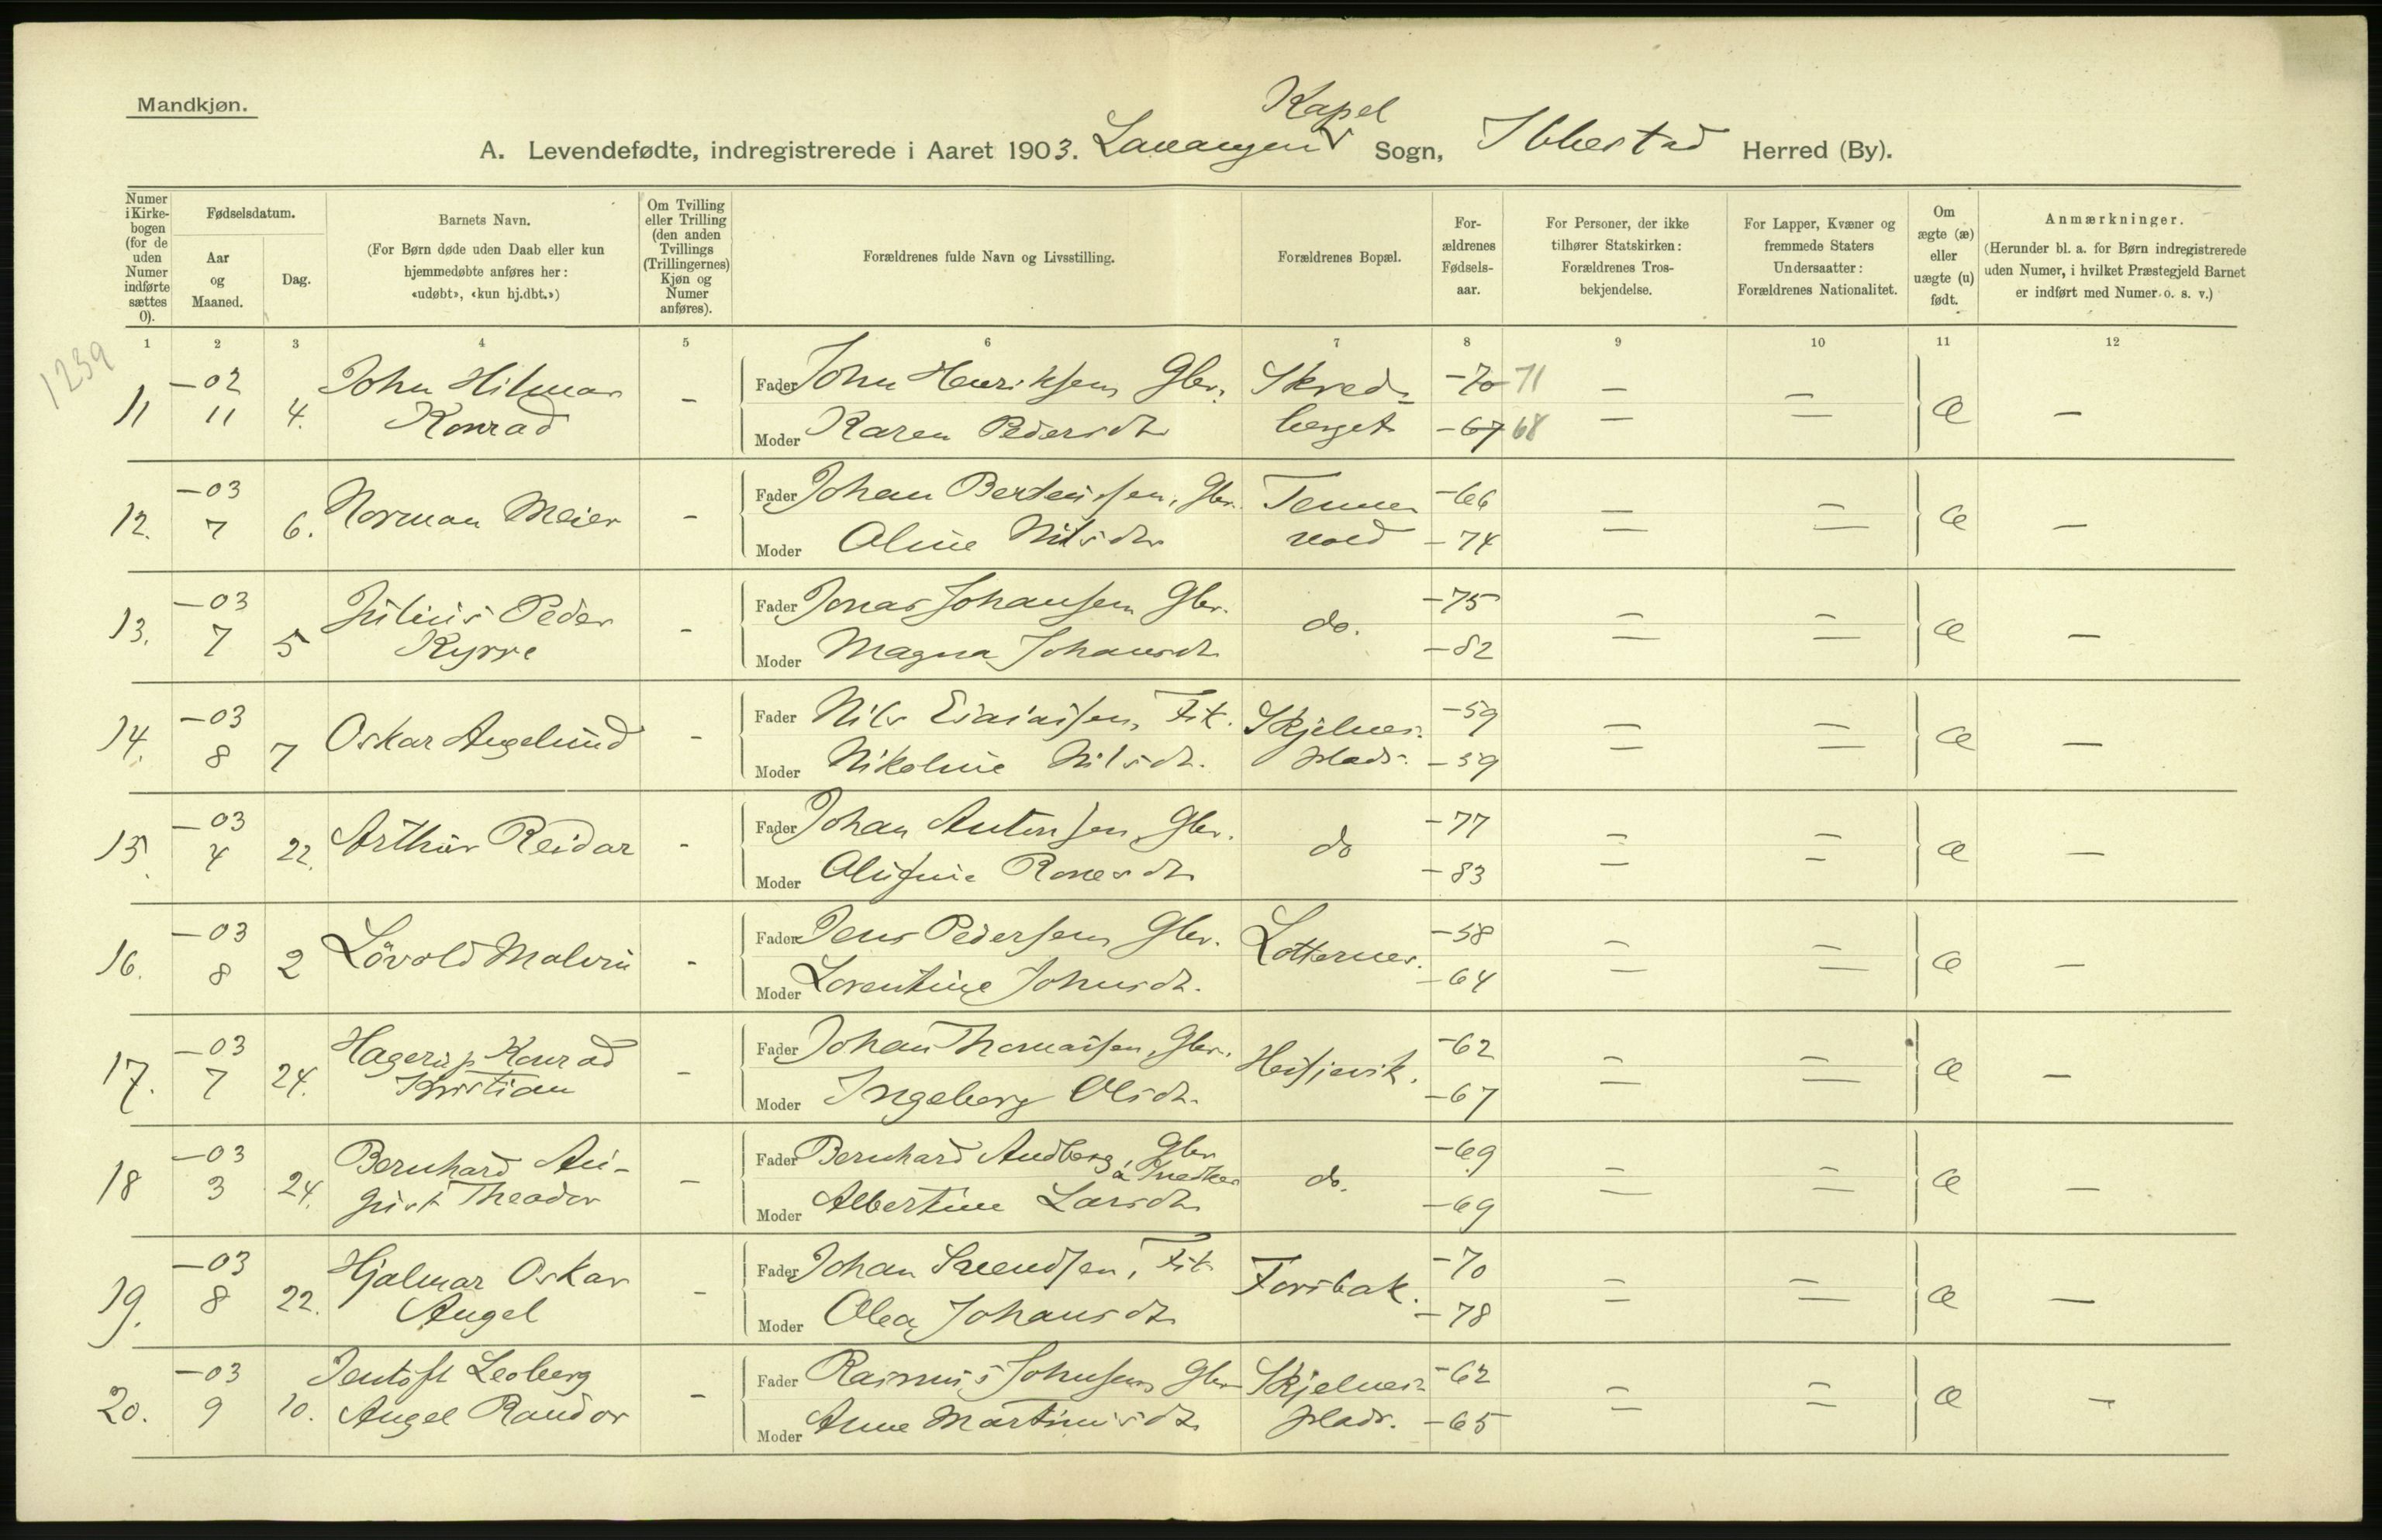 Mandkjøn.
Kapel
A. Levendefødte, indregistrerede i Aaret 1903. Lavangen Sogn, Ibbestad Herred (By).
Numer i Kirkebogen (for de uden Numer indførte sættes 0).
Fødselsdatum.
Aar og Maaned.
Dag.
Barnets Navn.
(For Børn døde uden Daab eller kun hjemmedøbte anføres her: «udøbt», «kun hj.dbt.»)
Om Tvilling eller Trilling (den anden Tvillings (Trillingernes) Kjøn og Numer anføres).
Forældrenes fulde Navn og Livsstilling.
Forældrenes Bopæl.
Forældrenes Fødselsaar.
For Personer, der ikke tilhører Statskirken: Forældrenes Trosbekjendelse.
For Lapper, Kvæner og fremmede Staters Undersaatter: Forældrenes Nationalitet.
Om ægte (æ) eller uægte (u) født.
Anmærkninger.
(Herunder bl. a. for Børn indregistrerede uden Numer, i hvilket Præstegjeld Barnet er indført med Numer o. s. v.)
1 2 3 4 5 6 7 8 9 10 11 12
1239
11 -02 John Hilmar - Fader John Henriksen Gbr. Skreds -70 71 - - æ -
11 4. Konrad Moder Karen Pedersdt berget -67 68 - -
12. -03 Norman Meier - Fader Johan Berteussen, Gbr. Tenne -66 - - æ -
7 6. Moder Oline Nilsdtr vold -74 - -
13. -03 Julius Peder - Fader Jonas Johansen Gbr. do. -75 - - æ -
7 5 Kyrre Moder Magna Johansdt -82 - -
14. -03 Oskar Angelund - Fader Nils Esaiassen, Fik. Skjelnes -59 - - æ -
8 7 Moder Nikoline Nilsdt. plads. -59 - -
15. -03 Arthur Reidar - Fader Johan Antonsen Gbr. do -77 - - æ -
4 22. Moder Rones dt -83 - -
16. -03 Lövold Malvin - Fader Jens Pedersen Gbr. Lotternes. -58 - - æ -
8 2 Moder Lorentine Johnsdt. -64 - -
17. -03 Hagerup Konrad - Fader Johan Thomassen, Gbr. -62 - - æ -
7 24. Kristian Moder Ingeborg Olsdt. -67 - -
18 -03 Bernhard Au- - Fader Bernhard Andberg, Gbr å Snedker do. -69 - - æ -
3 24. gust Theodor Moder Albertine Larsdt -69 - -
19. -03 Hjalmar Oskar - Fader Johan Svendsen, Fik Forsbak. -70 - - æ -
8 22. Angel Moder Olea Johansdt -78 - -
20. -03 Jentoft Leoberg - Fader Rasmus Johnsen Gbr Skjelnes -62 - - æ -
9 10. Angel Randor Moder Anne Martinusdt plads. -65 - -